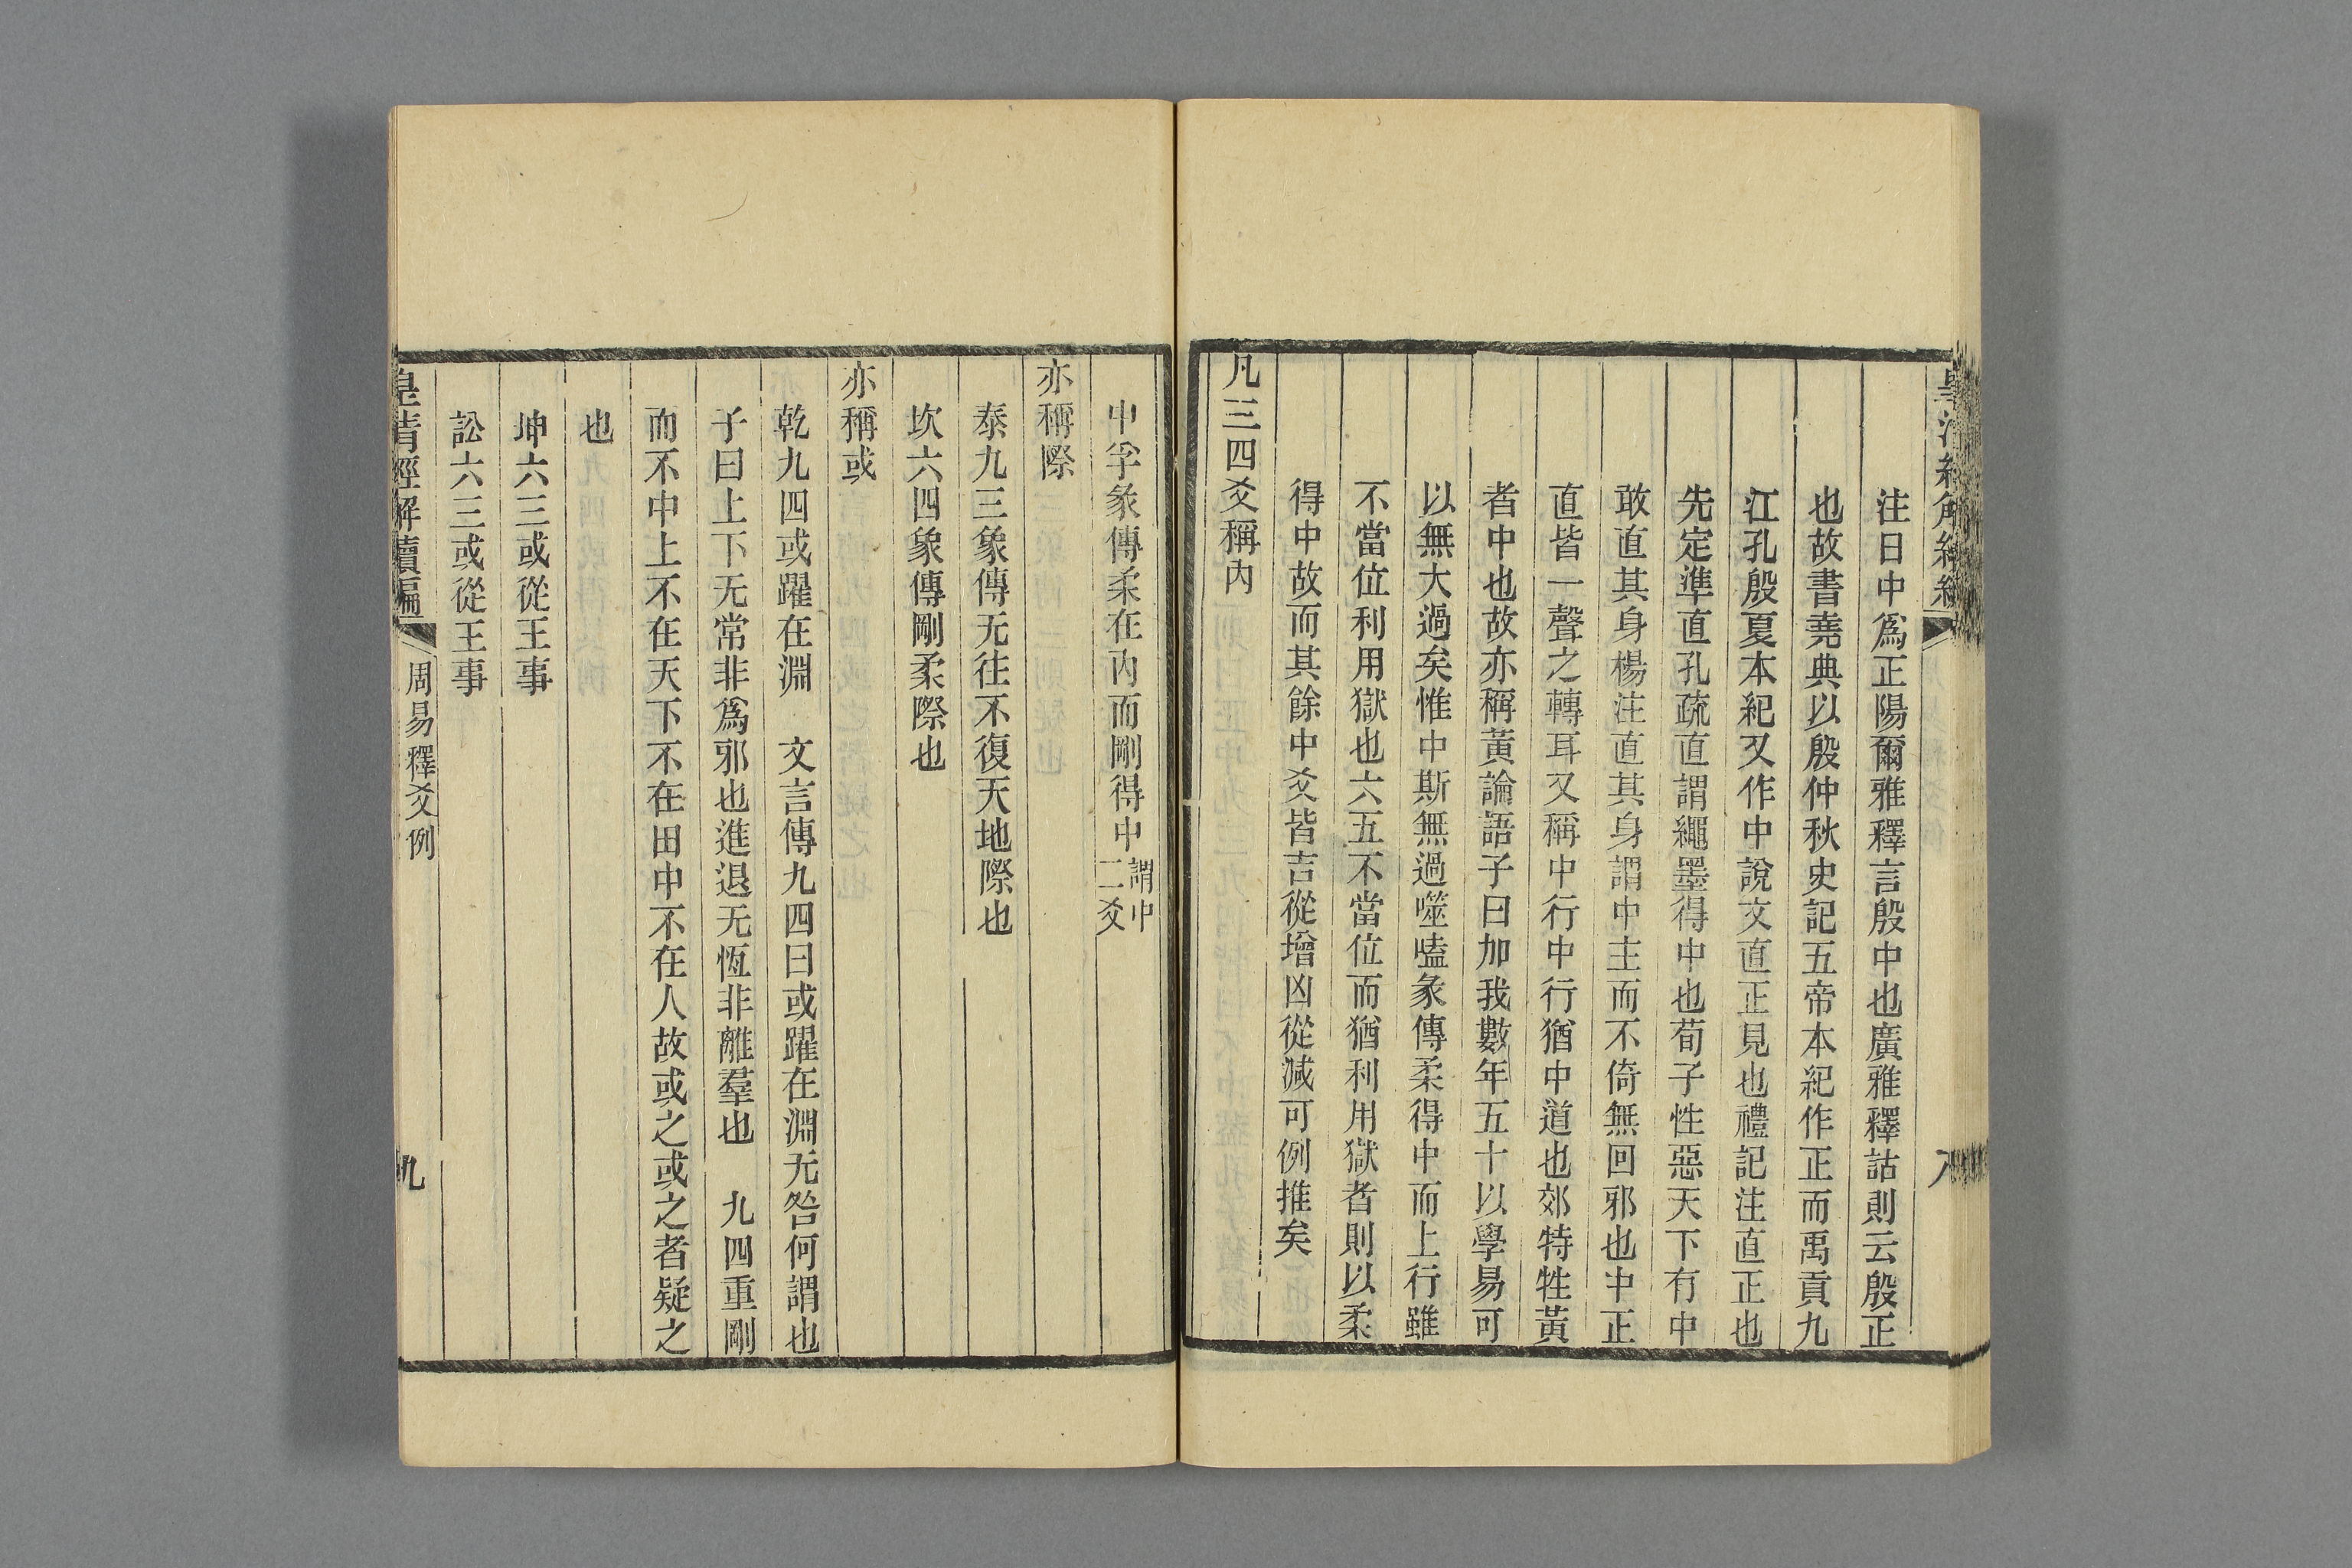 注日中爲正陽爾雅釋言殷中也廣雅釋詁則云殷正
也故書堯典以殷仲秋史記五帝本紀作正而禹貢九
江孔殷夏本紀又作中說文直正見也禮記注直正也
先定準直孔疏直謂繩墨得中也荀子性惡天下有中
敢直其身楊注直其身謂中主而不倚無回邪也中正
直皆一聲之轉耳又稱中行中行猶中道也郊特牲黃
者中也故亦稱黃論語子曰加我數年五十以學易可
以無大過矣惟中斯無過噬嗑彖傳柔得中而上行雖
不當位利用獄也六五不當位而猶利用獄者則以柔
得中故而其餘中爻皆吉從增凶從減可例推矣
凡三四爻稱內
中孚彖傳柔在內而剛得中謂中二爻
亦稱際
泰九三象傳无往不復天地際也
坎六四象傳剛柔際也
亦稱或
乾九四或躍在淵　文言傳九四曰或躍在淵无咎何謂也
子曰上下无常非爲邪也進退无恆非離羣也　九四重剛
而不中上不在天下不在田中不在人故或之或之者疑之
也
坤六三或從王事
訟六三或從王事
皇清經解續編　周易釋爻例　九